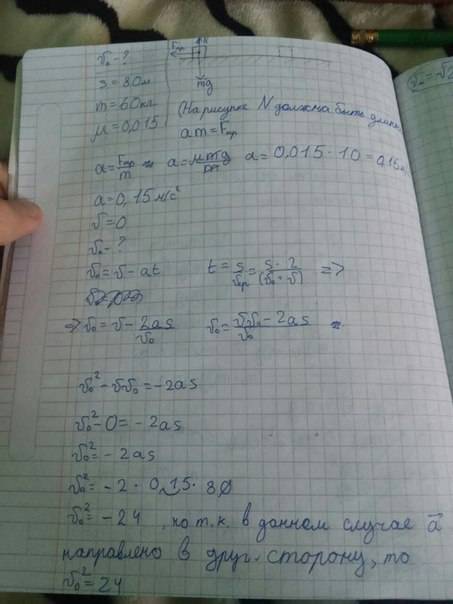 v₀ - ?
s = 80м
m = 60кг
μ = 0,015
Fтр
N
mg
(На рисунке N должна быть длин
am = Fтр
a = Fтр/m a = μmg/m a = 0,015 · 10 = 0,15м
a = 0,15 м/с²
v = 0
v₀ - ?
v₀ = v - at t = s/vср = s · 2/(v₀ + v) =>
=> v₀ = v - 2as/v₀ v₀ = vv₀ - 2as/v₀
v₀² - vv₀ = -2as
v₀² - 0 = -2as
v₀² = -2as
v₀² = -2 · 0,15 · 80
v₀² = -24 , но т.к. в данном случае a⃗
направлено в друг. сторону, то
v₀² = 24